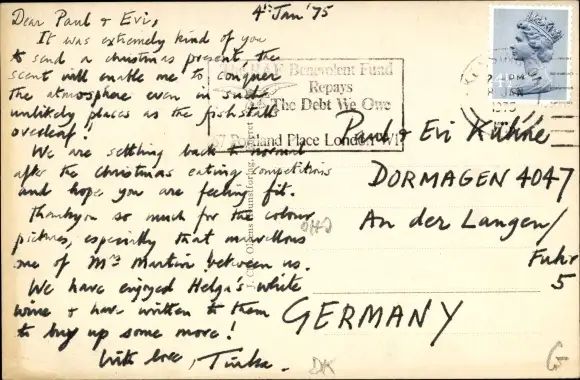 4th Jan '75
Dear Paul & Evi,
It was extremely kind of you
to send a christmas present, the
scent will enable me to conquer
the atmosphere even in such
unlikely places as the fishstalls
overleaf!
We are settling back to normal
after the christmas eating competitions
and hope you are feeling fit.
Thankyou so much for the colour
pictures, especially that marvellous
one of Mrs Martin between us.
We have enjoyed Helga's white
wine & have written to them
to buy up some more!
With love,
RAF Benevolent Fund
Repays
The Debt We Owe
67 Portland Place London W1
PM
JAN
1975
Paul & Evi Kühne
DORMAGEN 4047
An der Langen/
Fuhr
5
GERMANY
DK
G